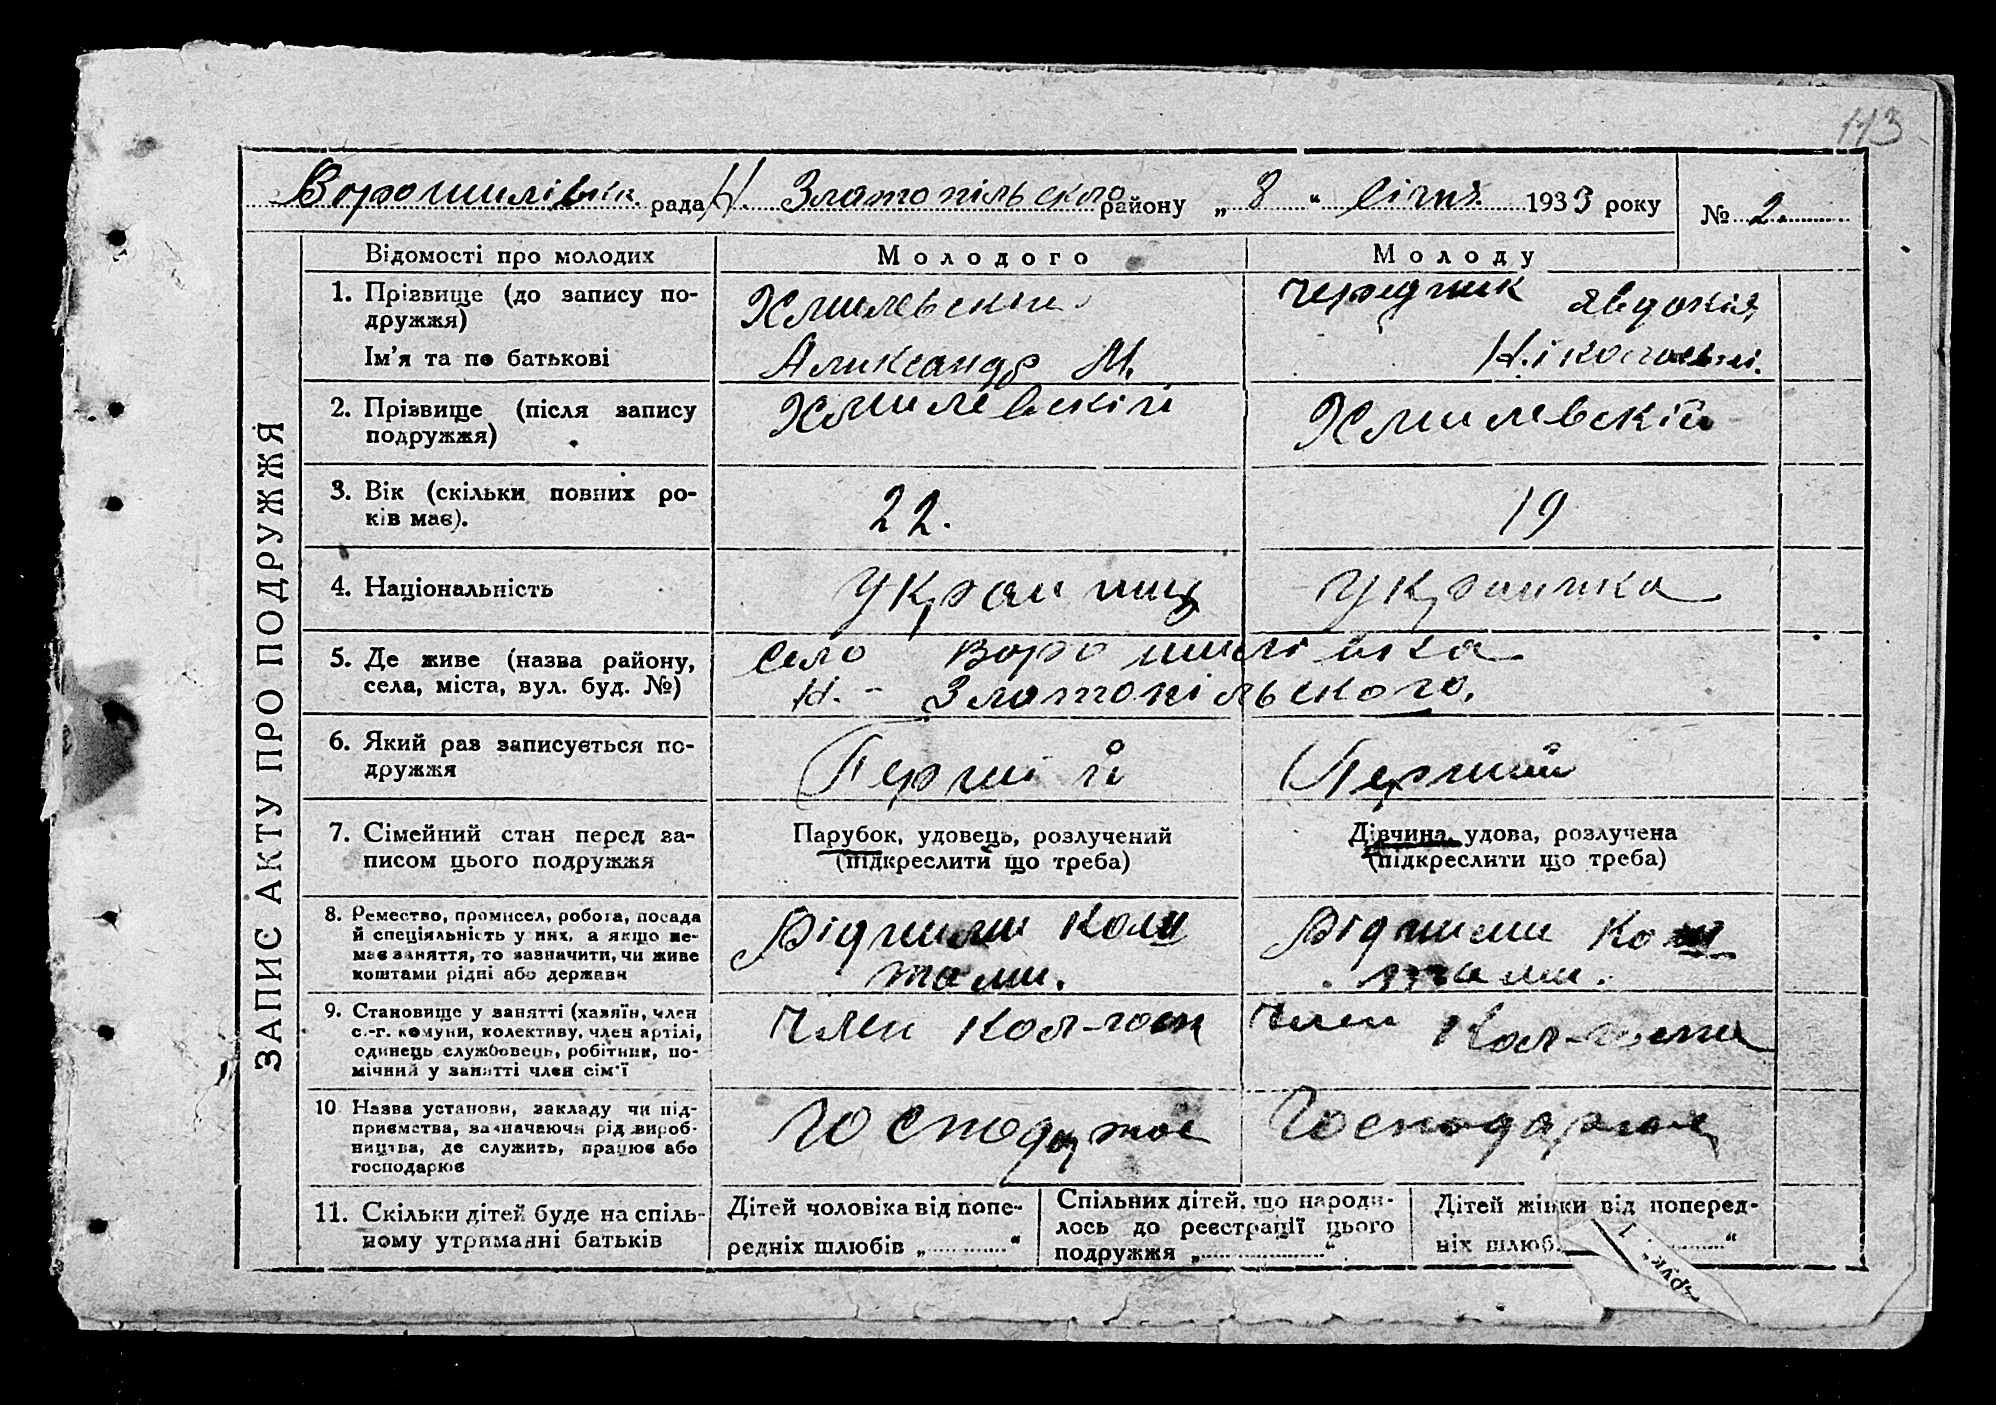 113
Ворошилівка рада Н. Златопільского району „ 8 “ січня 1933 року № 2.
ЗАПИС АКТУ ПРО ПОДРУЖЖЯ
Відомості про молодих
Молодого
Молоду
1. Прізвище (до запису по-
дружжя)
Ім'я та по батькові
Хмилевский
Александр М.
Чередник Явдокія
2. Прізвище (після запису
подружжя)
Хмилевскій
Хмилевскій
3. Вік (скільки повних ро-
ків має).
22.
19
4. Національність
Украинц
Украинка
5. Де живе (назва району,
села, міста, вул. буд. №)
село Ворошилівка
Н. - Златопільского.
6. Який раз записується по-
дружжя
Перший
Перший
7. Сімейний стан перед за-
писом цього подружжя
Парубок, удовець, розлучений
(підкреслити що треба)
Дівчина, удова, розлучена
(підкреслити що треба)
8. Ремество, промисел, робота, посада
й спеціяльність у них, а якщо не-
має заняття, то зазначити, чи живе
коштами рідні або держави
тами.
9. Становище у занятті (хазяїн, член
с.-г. комуни, колективу, член артілі,
одинець службовець, робітник, по-
мічний у занятті член сім'ї
Член
Член
10 Назва установи, закладу чи під-
приємства, зазначаючи рід вироб-
ництва, де служить, працює або
господарює
Господарює
Господарює
11. Скільки дітей буде на спіль-
ному утриманні батьків
Дітей чоловіка від попе-
редніх шлюбів „ “
Спільних дітей, що народи-
лось до реєстрації цього
подружжя „ “
Дітей жінки від поперед-
ніх шлюб. “